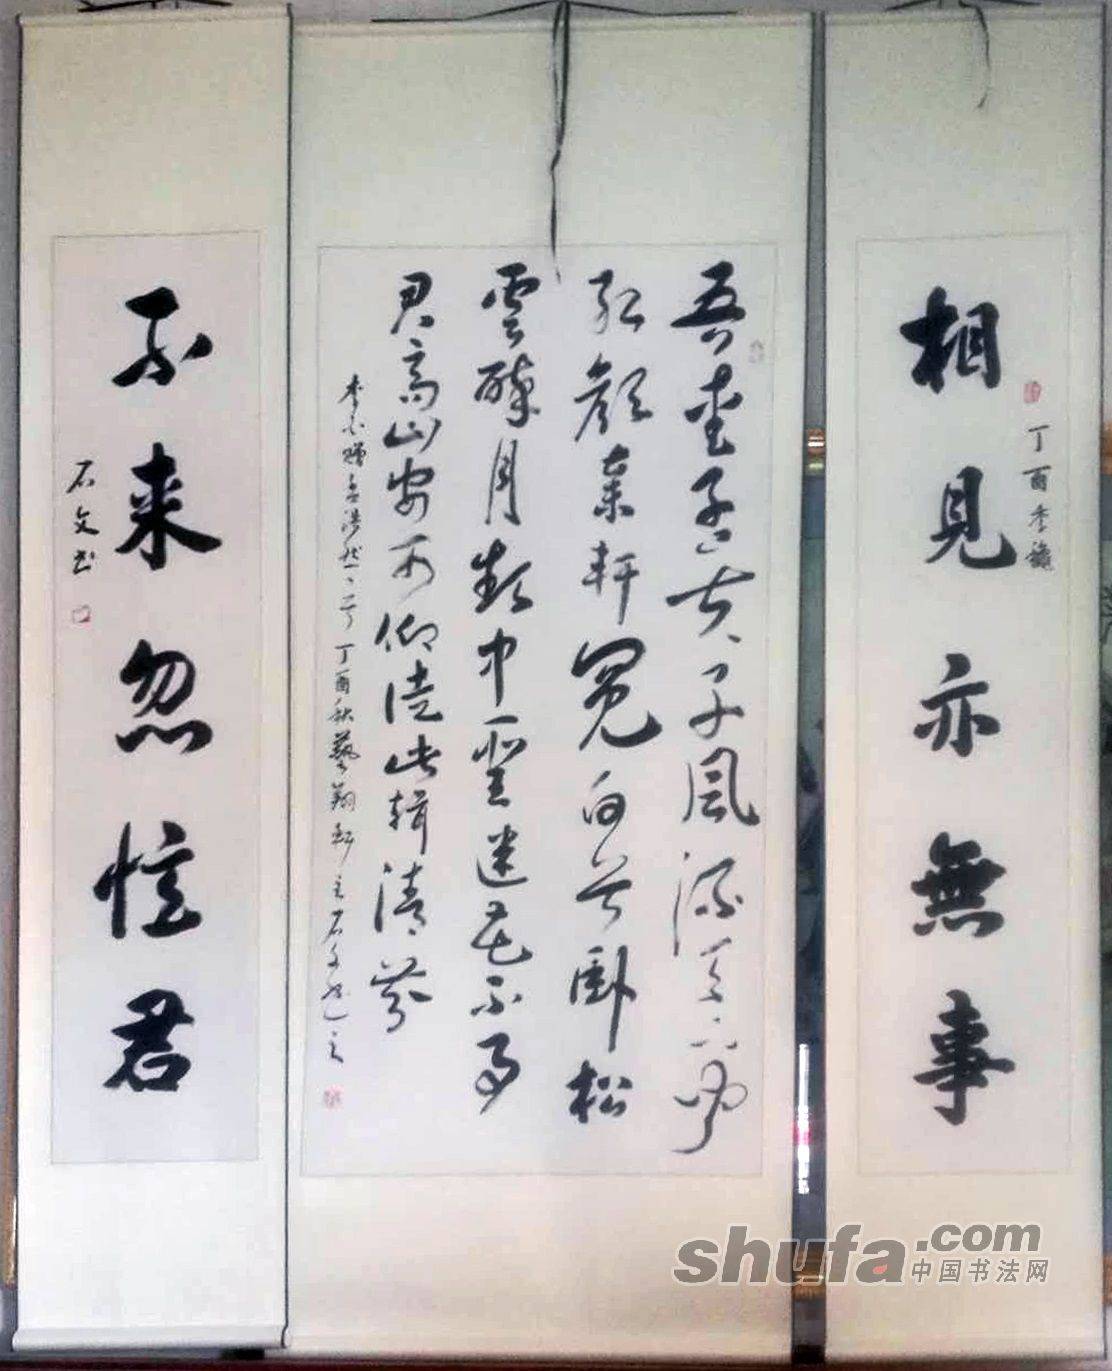 相見亦無事
丁酉季龝
吾愛孟夫子風流天下聞
紅顏棄軒冕白首臥松
雲醉月頻中聖迷花不事
君高山安可仰徒此揖清芬
李白贈孟浩然一首丁酉秋藝翔軒主石文書之
不来忽憶君
石文书
shufa.com
中国书法网